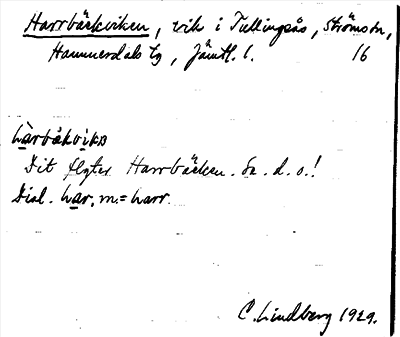 Harrbäckviken, vik i Tullingsås, Ströms sn,
Hammerdals tg, Jämtl. l. 16
hàrbäkvika
Dit flyter Harrbäcken. Se. d. o.!
Dial. har, m. = harr.
C. Lindberg 1929.